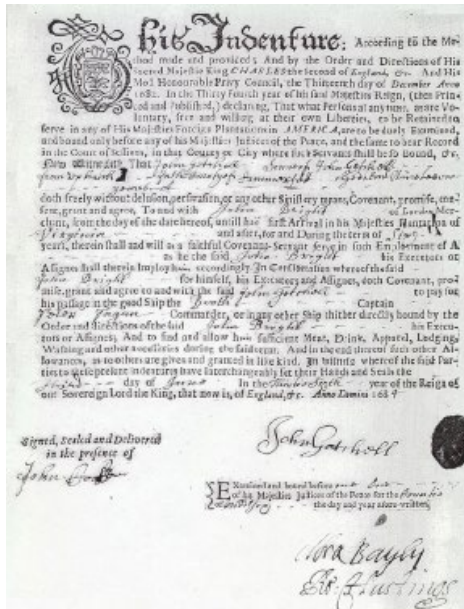 This Indenture; According to the Me-
thod made and provided; And by the Order and Directions of His
Sacred Majestie King CHARLES the Second of England, &c. And His
Most Honourable Privy Council, the Thirteenth day of December Anno
1682. In the Thirty Fourth year of his said Majesties Reign, (then Prin-
ted and Published,) declaring, That what Person at any time, as are Vo-
luntary, free and willing at their own Liberties, to be Retained to
serve in any of His Majesties Foreign Plantation in AMERICA, are to be duely Examined,
and bound only before any of his Majesties Justices of the Peace, and the same to bear Record
in the Court of Sessions, in that County or City where such Servants shall be so Bound, &c.
That John
doth freely without delusion, perswasion, or any other Sinistery means, Covenant, promise, con-
sent, grant and agree, To and with John Bright of London Mer-
chant, from the day of the date hereof, until his first Arrival in his Majesties Plantation of
Virginia and after, for and During the term of
years, therein shall and will as a faithful Covenant-Servant serve in such Employment of A
as he the said John Bright his Executors or
Assigns shall therein Imploy him accordingly In Consideration whereof the said
John Bright for himself, his Executors and Assigns, doth Covenant, pro-
mise, grant and agree to and with the said John to pay for
his passage in the good Ship the Captain
Commander, or in any other Ship thither directly bound by the
Order and directions of the said John Bright his Execu-
tors or Assigns, And to find and allow him sufficient Meat, Drink, Apparel, Lodging,
Washing and other necessaries during the said term, And in the end thereof such other Al-
lowances, as to others are given and granted in like kind. In witness whereof the said Par-
ties to these present Indentures have interchangeably set their Hands and Seals the
day of June In the Thirty Sixth year of the Reign of
our Sovereign Lord the King, that now is, of England, &c. Anno Domini 1684
Signed, Sealed and Delivered
in the presence of
John
John
Examined and bound before
of his Majesties Justices of the Peace for the
the day and year above-written,
Bayly